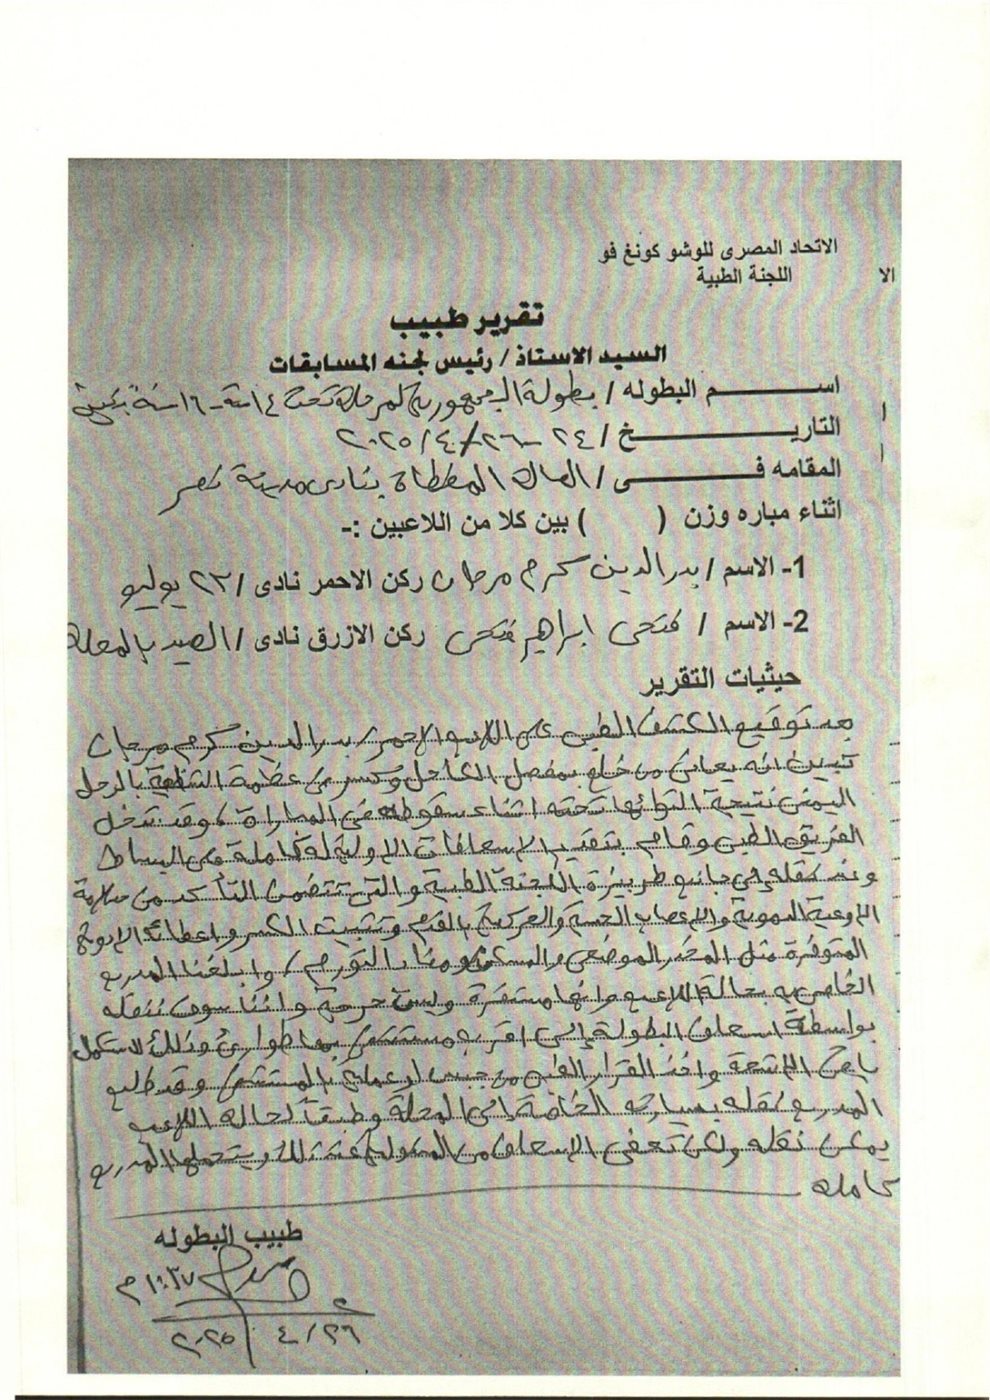 الاتحاد المصرى للوشو كونغ فو
اللجنة الطبية
الا
تقرير طبيب
السيد الاستاذ / رئيس لجنه المسابقات
اسم البطوله / بطولة الجمهورية لمرحلة تحت ١٤ سنة - ١٦ سنة بنين
التاريخ / ٢٤ - ٢٦ / ٤ / ٢٠٢٥
المقامه فى / الصالة المغطاة بنادى مدينة نصر
اثناء مباره وزن ( ) بين كلا من اللاعبين :-
1- الاسم / بدر الدين كرم مرجان ركن الاحمر نادى / ٢٣ يوليو
2- الاسم / فتحى ابراهيم فتحى ركن الازرق نادى / الصيد بالمحلة
حيثيات التقرير
بعد توقيع الكشف الطبى على اللاعب الاحمر / بدر الدين كرم مرجان
تبين انه يعانى من خلع بمفصل الكاحل وكسر من عظمة الشظية بالرجل
اليمنى نتيجة التوائها تحته اثناء سقوطه فى المباراة ، وقد تدخل
الفريق الطبى وقام بتقديم الاسعافات الاولية له كاملة على البساط
وتم نقله الى جانب طربيزة اللجنة الطبية والتى تتضمن التأكد من سلامة
الاوعية الدموية والاعصاب الحسية والحركية بالقدم وتثبيت الكسر واعطائه الادوية
المتوفرة مثل المخدر الموضعى والمسكن ومضاد التورم ، وابلغنا المدرب
الخاص به بحالة اللاعب وانها مستقرة وليست حرجة واننا سوف ننقله
بواسطة اسعاف البطولة الى اقرب مستشفى بها طوارئ وذلك لاستكمال
باقى الاشعة واخذ القرار الفنى من جبس او عملية بالمستشفى وقد طلب
المدرب نقله بسيارته الخاصة الى المحلة وطبقاً لحالة اللاعب
يمكن نقله ولكن تخفى الاسعاف من المسئولية عند ذلك ويتحملها المدرب
كاملة
طبيب البطوله
١٠:٣٧ م
٢٠٢٥ / ٤ / ٢٦